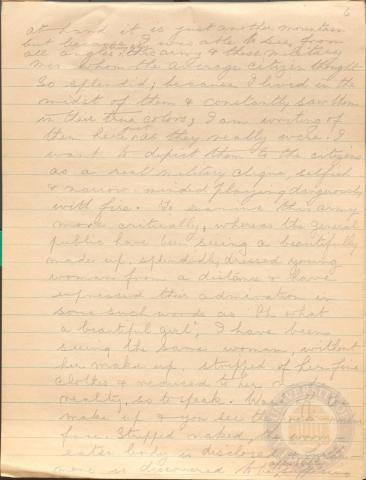 6
at hand it is just another mountain
but because I was able to see, from
all angles, this army & those military
men whom the average citizen thought
so splendid; because I lived in the
midst of them & constantly saw them
in their true colors; I am writing of
them here just as they really were. I
want to depict them to the citizens
as a real military clique, selfish
& narrow-minded playing dangerously
with fire. To examine this army
more critically, whereas the general
public have been seeing a beautifully
made up, splendidly dressed young
woman from a distance & have
expressed their admiration in
some such words as "Oh what
a beautiful girl", I have been
seeing the same woman, without
her make up, stripped of her fine
clothes & reduced to her
reality, so to speak.
make up & you see the
face. Stripped naked, the
eaten body is disclosed &
more is discovered to be